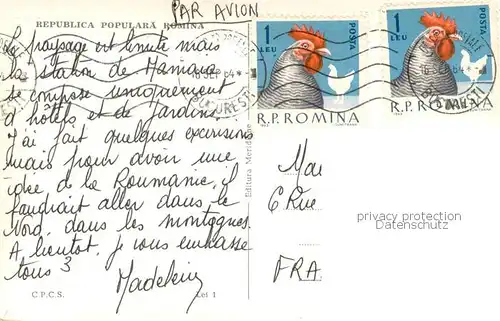 PAR AVION
REPUBLICA POPULARĂ ROMÎNĂ
Le paysage est limité mais
la station de Mamaia
se compose uniquement
d'hôtels et de jardins.
J'ai fait quelques excursions
mais pour avoir une
idée de la Roumanie, il
faudrait aller dans le
Nord, dans les montagnes.
A bientôt, je vous embrasse
tous 3
Madeleine
C.P.C.S.
Lei 1
Editura Meridiane
1 LEU
POSTA
R.P. ROMINA
1 LEU
POSTA
R.P. ROMINA
BUCUREȘTI
64
Mai
6 Rue
FRA
privacy protection
Datenschutz